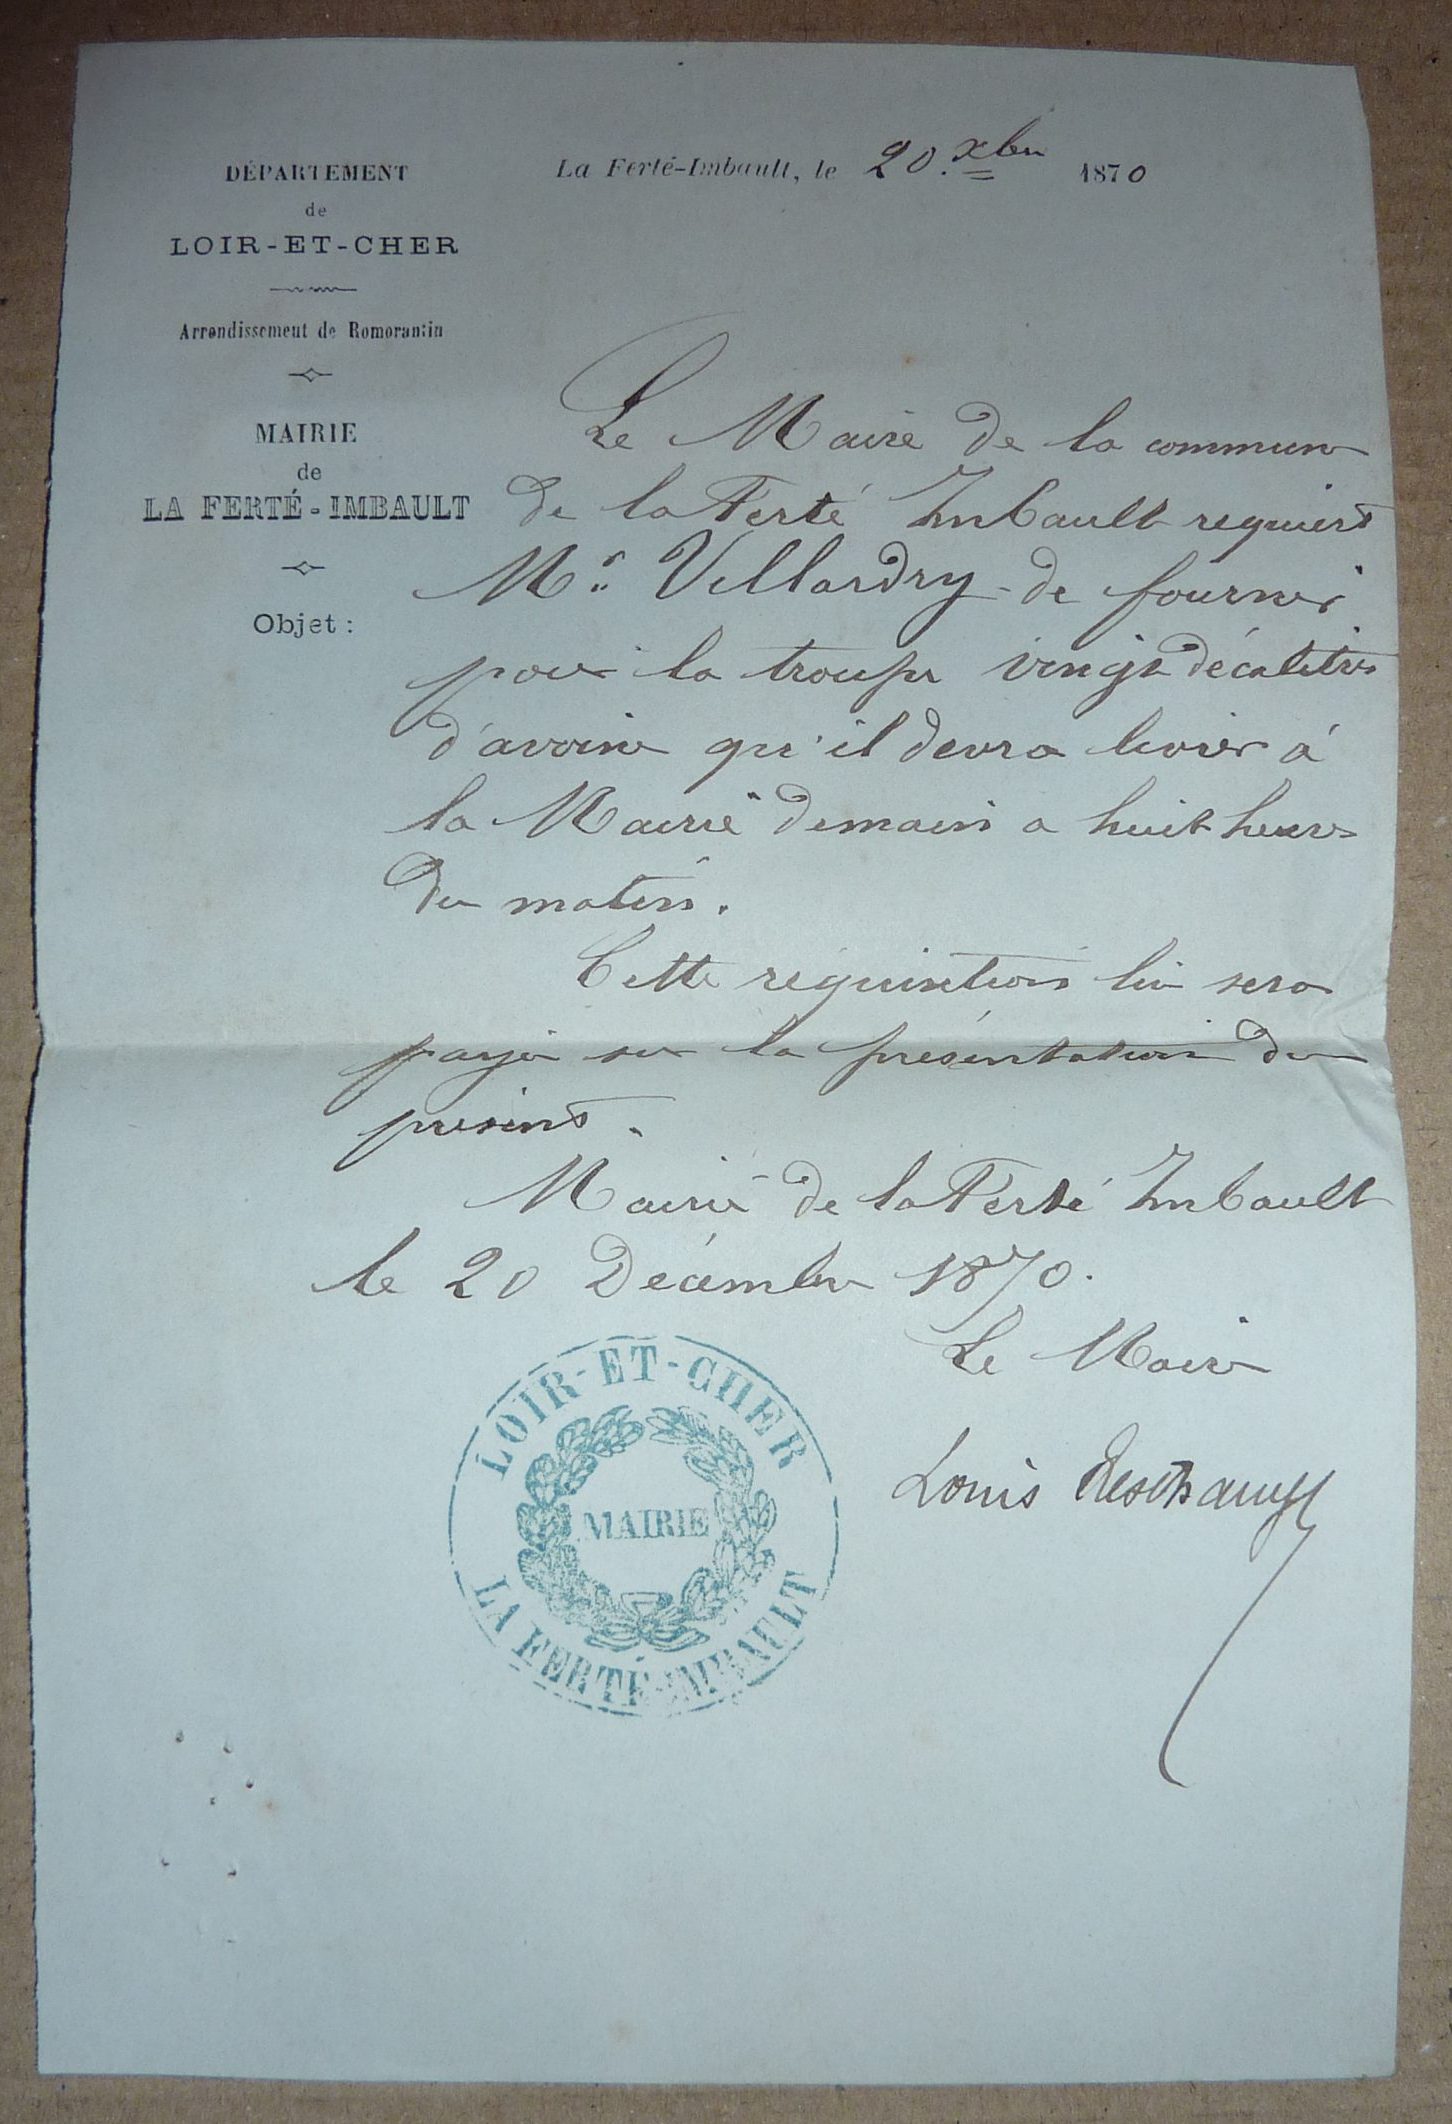 DÉPARTEMENT
de
LOIR-ET-CHER
Arrondissement de Romorantin
MAIRIE
de
LA FERTÉ-IMBAULT
Objet :
La Ferté-Imbault, le 20 Xbre 1870
Le Maire de la commune
de la Ferté Imbault requiert
Mr. Villardry de fournir
pour la troupe vingt décalitres
d'avoine qu'il devra livrer à
la Mairie demain a huit heures
du matin.
Cette réquisition lui sera
payée sur la présentation du
présent.
Mairie de la Ferté Imbault
le 20 Décembre 1870.
Le Maire
Louis Deschamps
LOIR-ET-CHER
MAIRIE
LA FERTÉ-IMBAULT